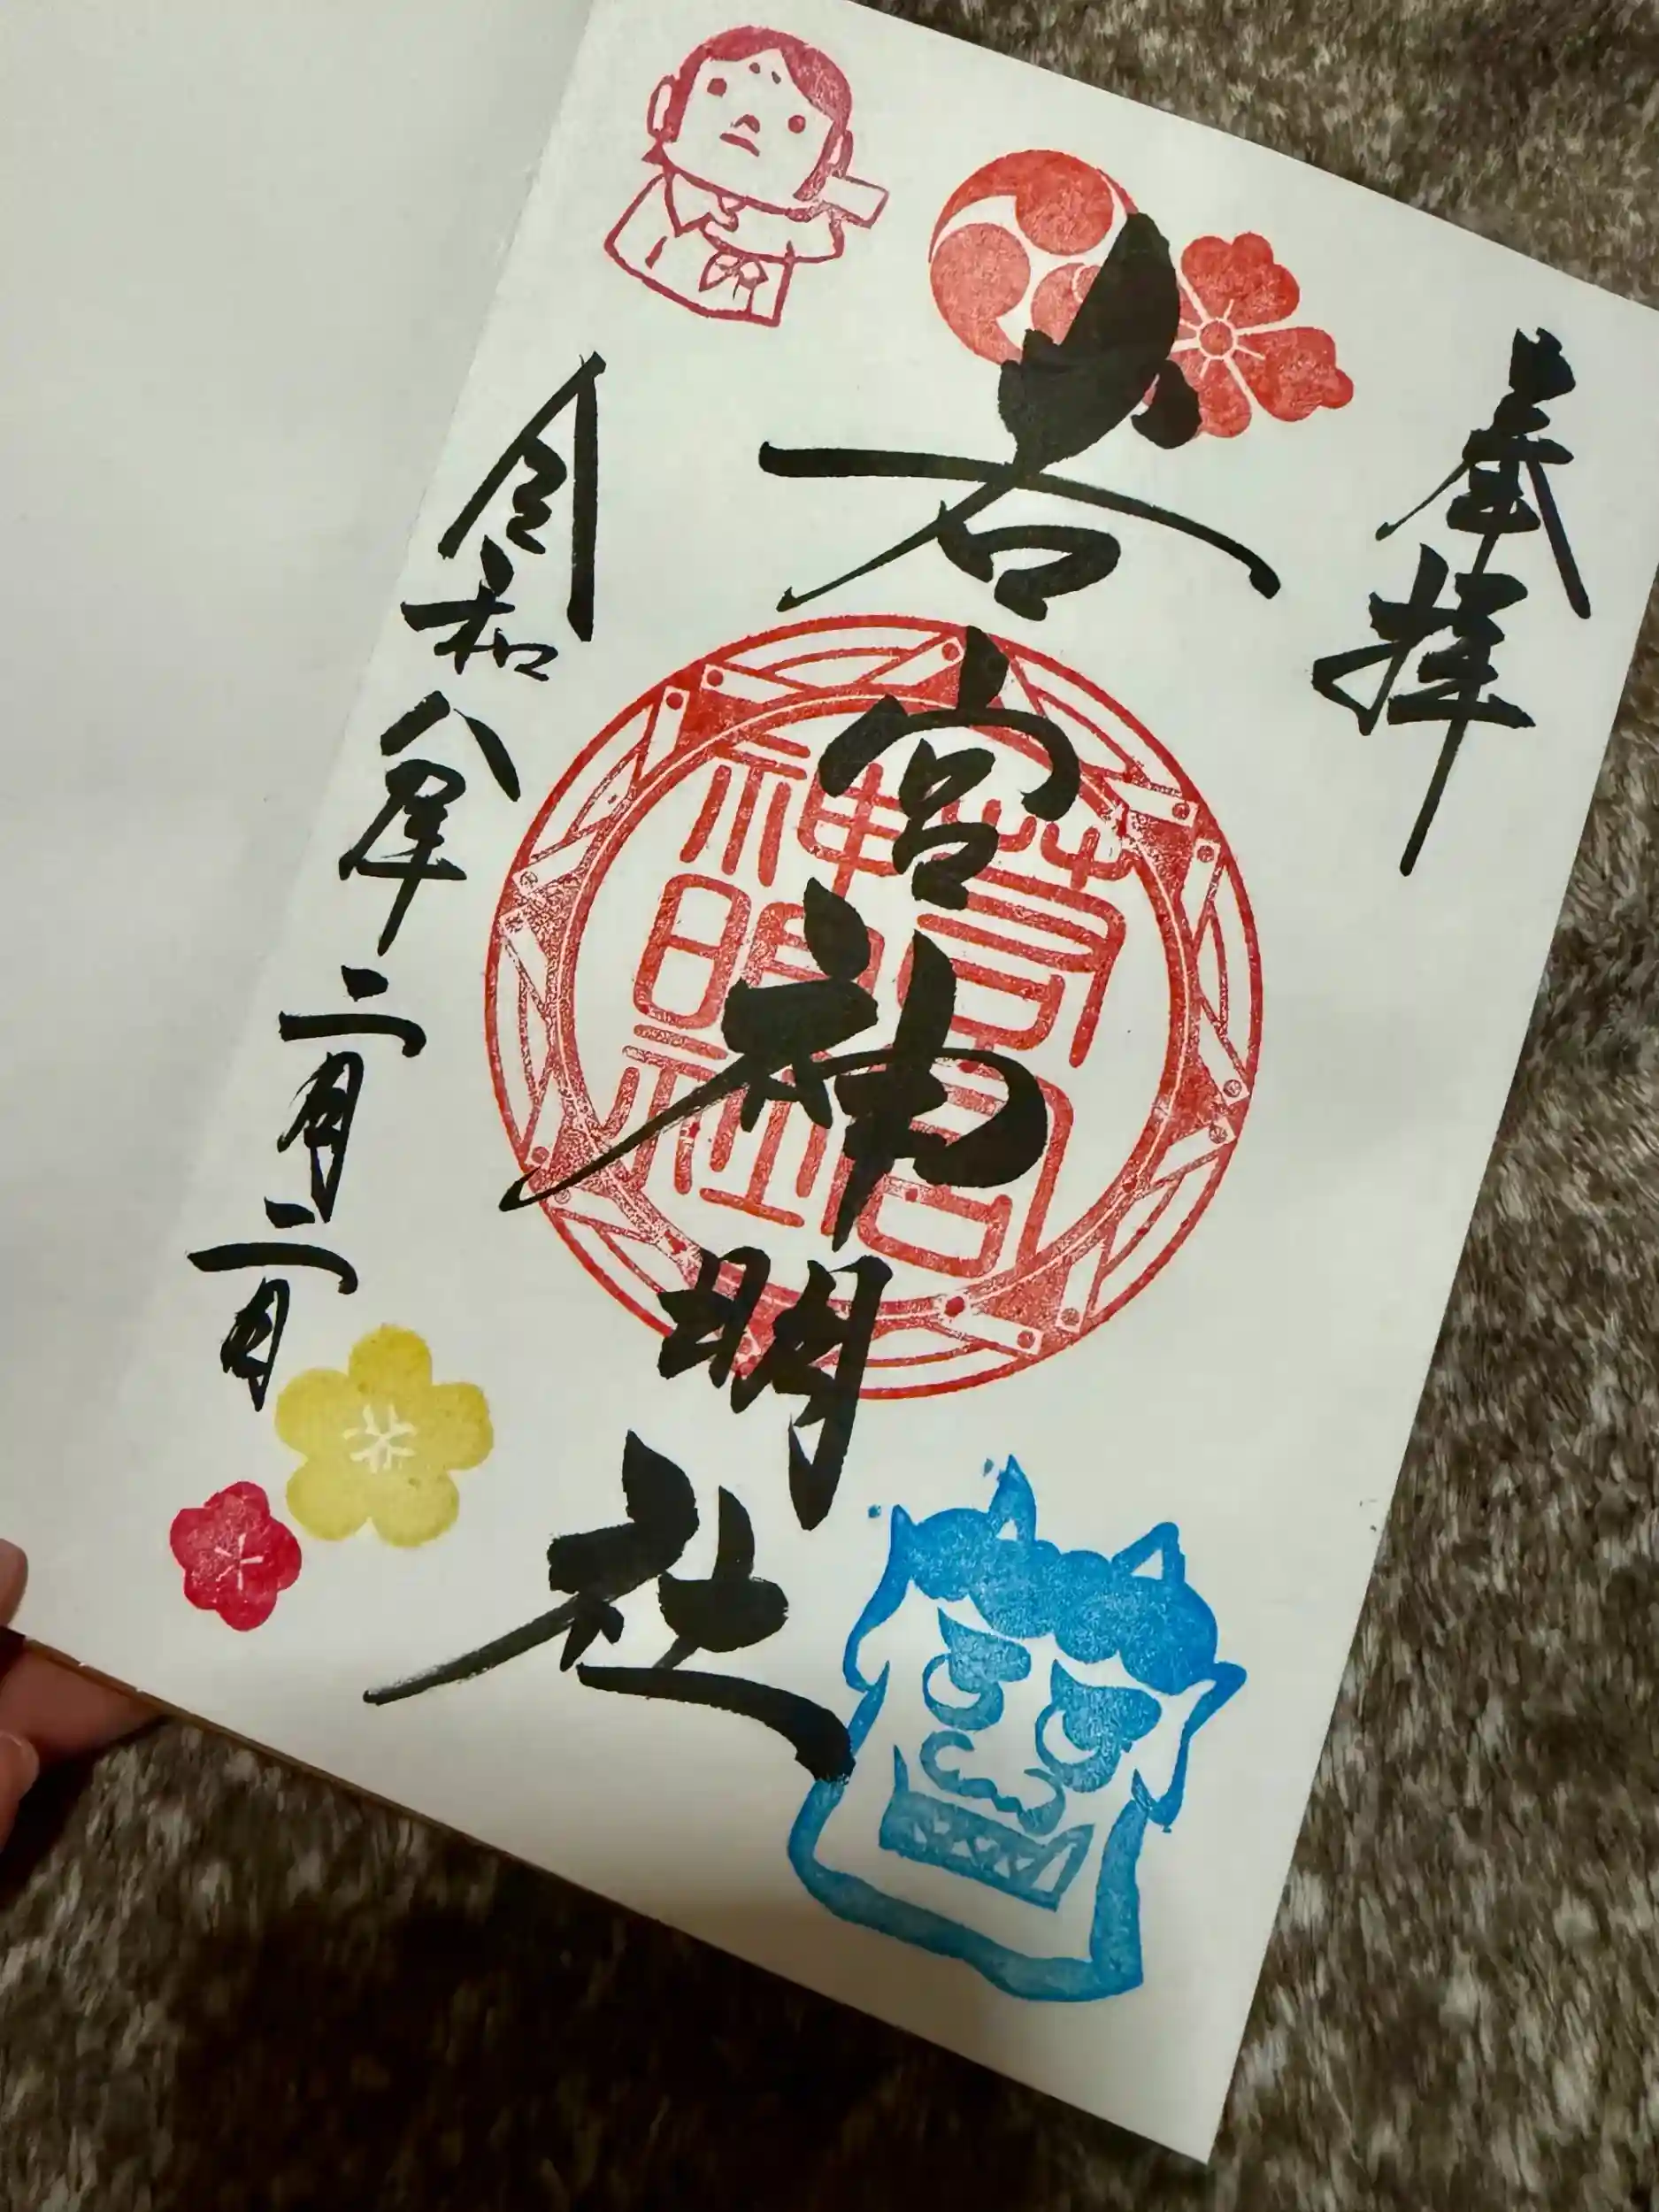 奉拝
若宮神明社
若宮
神明社
令和八年二月二日